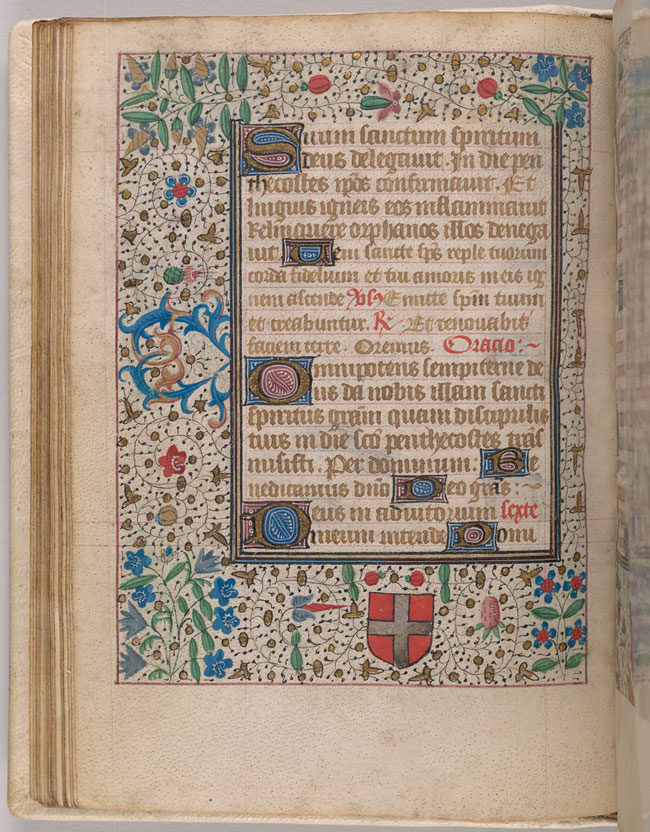 Suum sanctum spiritum
deus delegavit. In die pen
thecostes ip̄os confirmavit. Et
linguis igneis eos inflammavit
Relinquere orphanos illos denega
vit. Veni sancte sp̄s reple tuorum
corda fidelium et tui amoris in eis ig
nem ascende V̄s Emitte sp̄m tuum
et creabuntur. R̄ Et renovabis
faciem terre. Oremus. Oracio :~
Omnipotens sempiterne de
us da nobis illam sancti
spiritus grām quam discipulis
tuis in die sc̄o penthecostes tras
misisti. Per dominum. Be
nedicamus dn̄o Deo grās.
Deus in adiutorium sexte
meum intende Domi